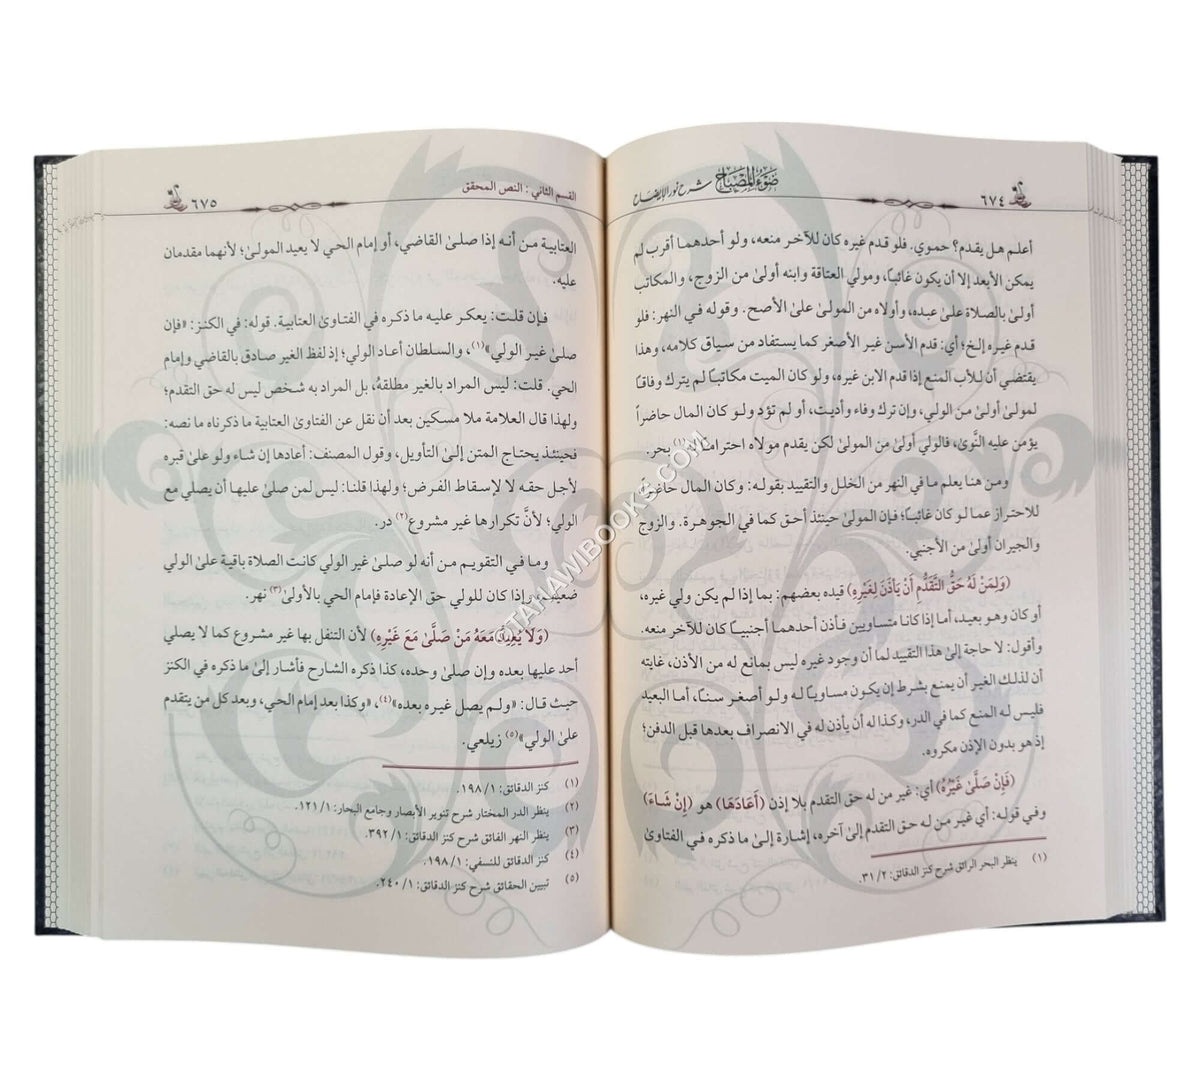 ٦٧٤
ضوء المصباح شرح نور الإيضاح
أعلم هل يقدم؟ حموي. فلو قدم غيره كان للآخر منعه، ولو أحدهما أقرب لم
يمكن الأبعد إلا أن يكون غائبًا، ومولي العتاقة وابنه أولىٰ من الزوج، والمكاتب
أولىٰ بالصلاة علىٰ عبده، وأولاه من المولىٰ علىٰ الأصح. وقوله في النهر: فلو
قدم غيره إلخ؛ أي: قدم الأسن غير الأصغر كما يستفاد من سياق كلامه، وهذا
يقتضي أن للأب المنع إذا قدم الابن غيره، ولو كان الميت مكاتبًا لم يترك وفاقًا
لمولىٰ أولىٰ من الولي، وإن ترك وفاء وأديت، أو لم تؤد ولو كان المال حاضراً
يؤمن عليه النَّوىٰ، فالولي أولىٰ من المولىٰ لكن يقدم مولاه احترامًا(١) بحر.
ومن هنا يعلم ما في النهر من الخلل والتقييد بقوله: وكان المال حاضراً
للاحتراز عما لو كان غائبًا؛ فإن المولىٰ حينئذ أحق كما في الجوهرة. والزوج
والجيران أولىٰ من الأجنبي.
(وَلِمَنْ لَهُ حَقُّ التَّقَدُّمِ أَنْ يَأْذَنَ لِغَيْرِهِ) قيده بعضهم: بما إذا لم يكن ولي غيره،
أو كان وهو بعيد، أما إذا كانا متساويين فأذن أحدهما أجنبيًا كان للآخر منعه.
وأقول: لا حاجة إلىٰ هذا التقييد لما أن وجود غيره ليس بمانع له من الأذن، غايته
أن لذلك الغير أن يمنع بشرط إن يكون مساويًا له ولو أصغر سنًا، أما البعيد
فليس له المنع كما في الدر، وكذا له أن يأذن له في الانصراف بعدها قبل الدفن؛
إذ هو بدون الإذن مكروه.
(فَإِنْ صَلَّىٰ غَيْرُهُ) أي: غير من له حق التقدم بلا إذن (أَعَادَهَا) هو (إِنْ شَاءَ)
وفي قوله: أي غير من له حق التقدم إلىٰ آخره، إشارة إلىٰ ما ذكره في الفتاوىٰ
(١) ينظر البحر الرائق شرح كنز الدقائق: ٢/ ٣١.
القسم الثاني: النص المحقق
٦٧٥
العتابية من أنه إذا صلىٰ القاضي، أو إمام الحي لا يعيد المولىٰ؛ لأنهما مقدمان
عليه.
فإن قلت: يعكر عليه ما ذكره في الفتاوىٰ العتابية. قوله: في الكنز: «فإن
صلىٰ غير الولي»(١)، والسلطان أعاد الولي؛ إذ لفظ الغير صادق بالقاضي وإمام
الحي. قلت: ليس المراد بالغير مطلقهُ، بل المراد به شخص ليس له حق التقدم؛
ولهذا قال العلامة ملا مسكين بعد أن نقل عن الفتاوىٰ العتابية ما ذكرناه ما نصه:
فحينئذ يحتاج المتن إلىٰ التأويل، وقول المصنف: أعادها إن شاء ولو علىٰ قبره
لأجل حقه لا لإسقاط الفرض؛ ولهذا قلنا: ليس لمن صلىٰ عليها أن يصلي مع
الولي؛ لأنَّ تكرارها غير مشروع(٢) در.
وما في التقويم من أنه لو صلىٰ غير الولي كانت الصلاة باقية علىٰ الولي
ضعيف، وإذا كان للولي حق الإعادة فإمام الحي بالأولىٰ(٣) نهر.
(وَلَا يُعِيدُ مَعَهُ مَنْ صَلَّىٰ مَعَ غَيْرِهِ) لأن التنفل بها غير مشروع كما لا يصلي
أحد عليها بعده وإن صلىٰ وحده، كذا ذكره الشارح فأشار إلىٰ ما ذكره في الكنز
حيث قال: «ولم يصل غيره بعده»(٤)، «وكذا بعد إمام الحي، وبعد كل من يتقدم
علىٰ الولي»(٥) زيلعي.
(١) كنز الدقائق: ١/ ١٩٨.
(٢) ينظر الدر المختار شرح تنوير الأبصار وجامع البحار: ١/ ١٢١.
(٣) ينظر النهر الفائق شرح كنز الدقائق: ١/ ٣٩٢.
(٤) كنز الدقائق للنسفي: ١/ ١٩٨.
(٥) تبيين الحقائق شرح كنز الدقائق: ١/ ٢٤٠.